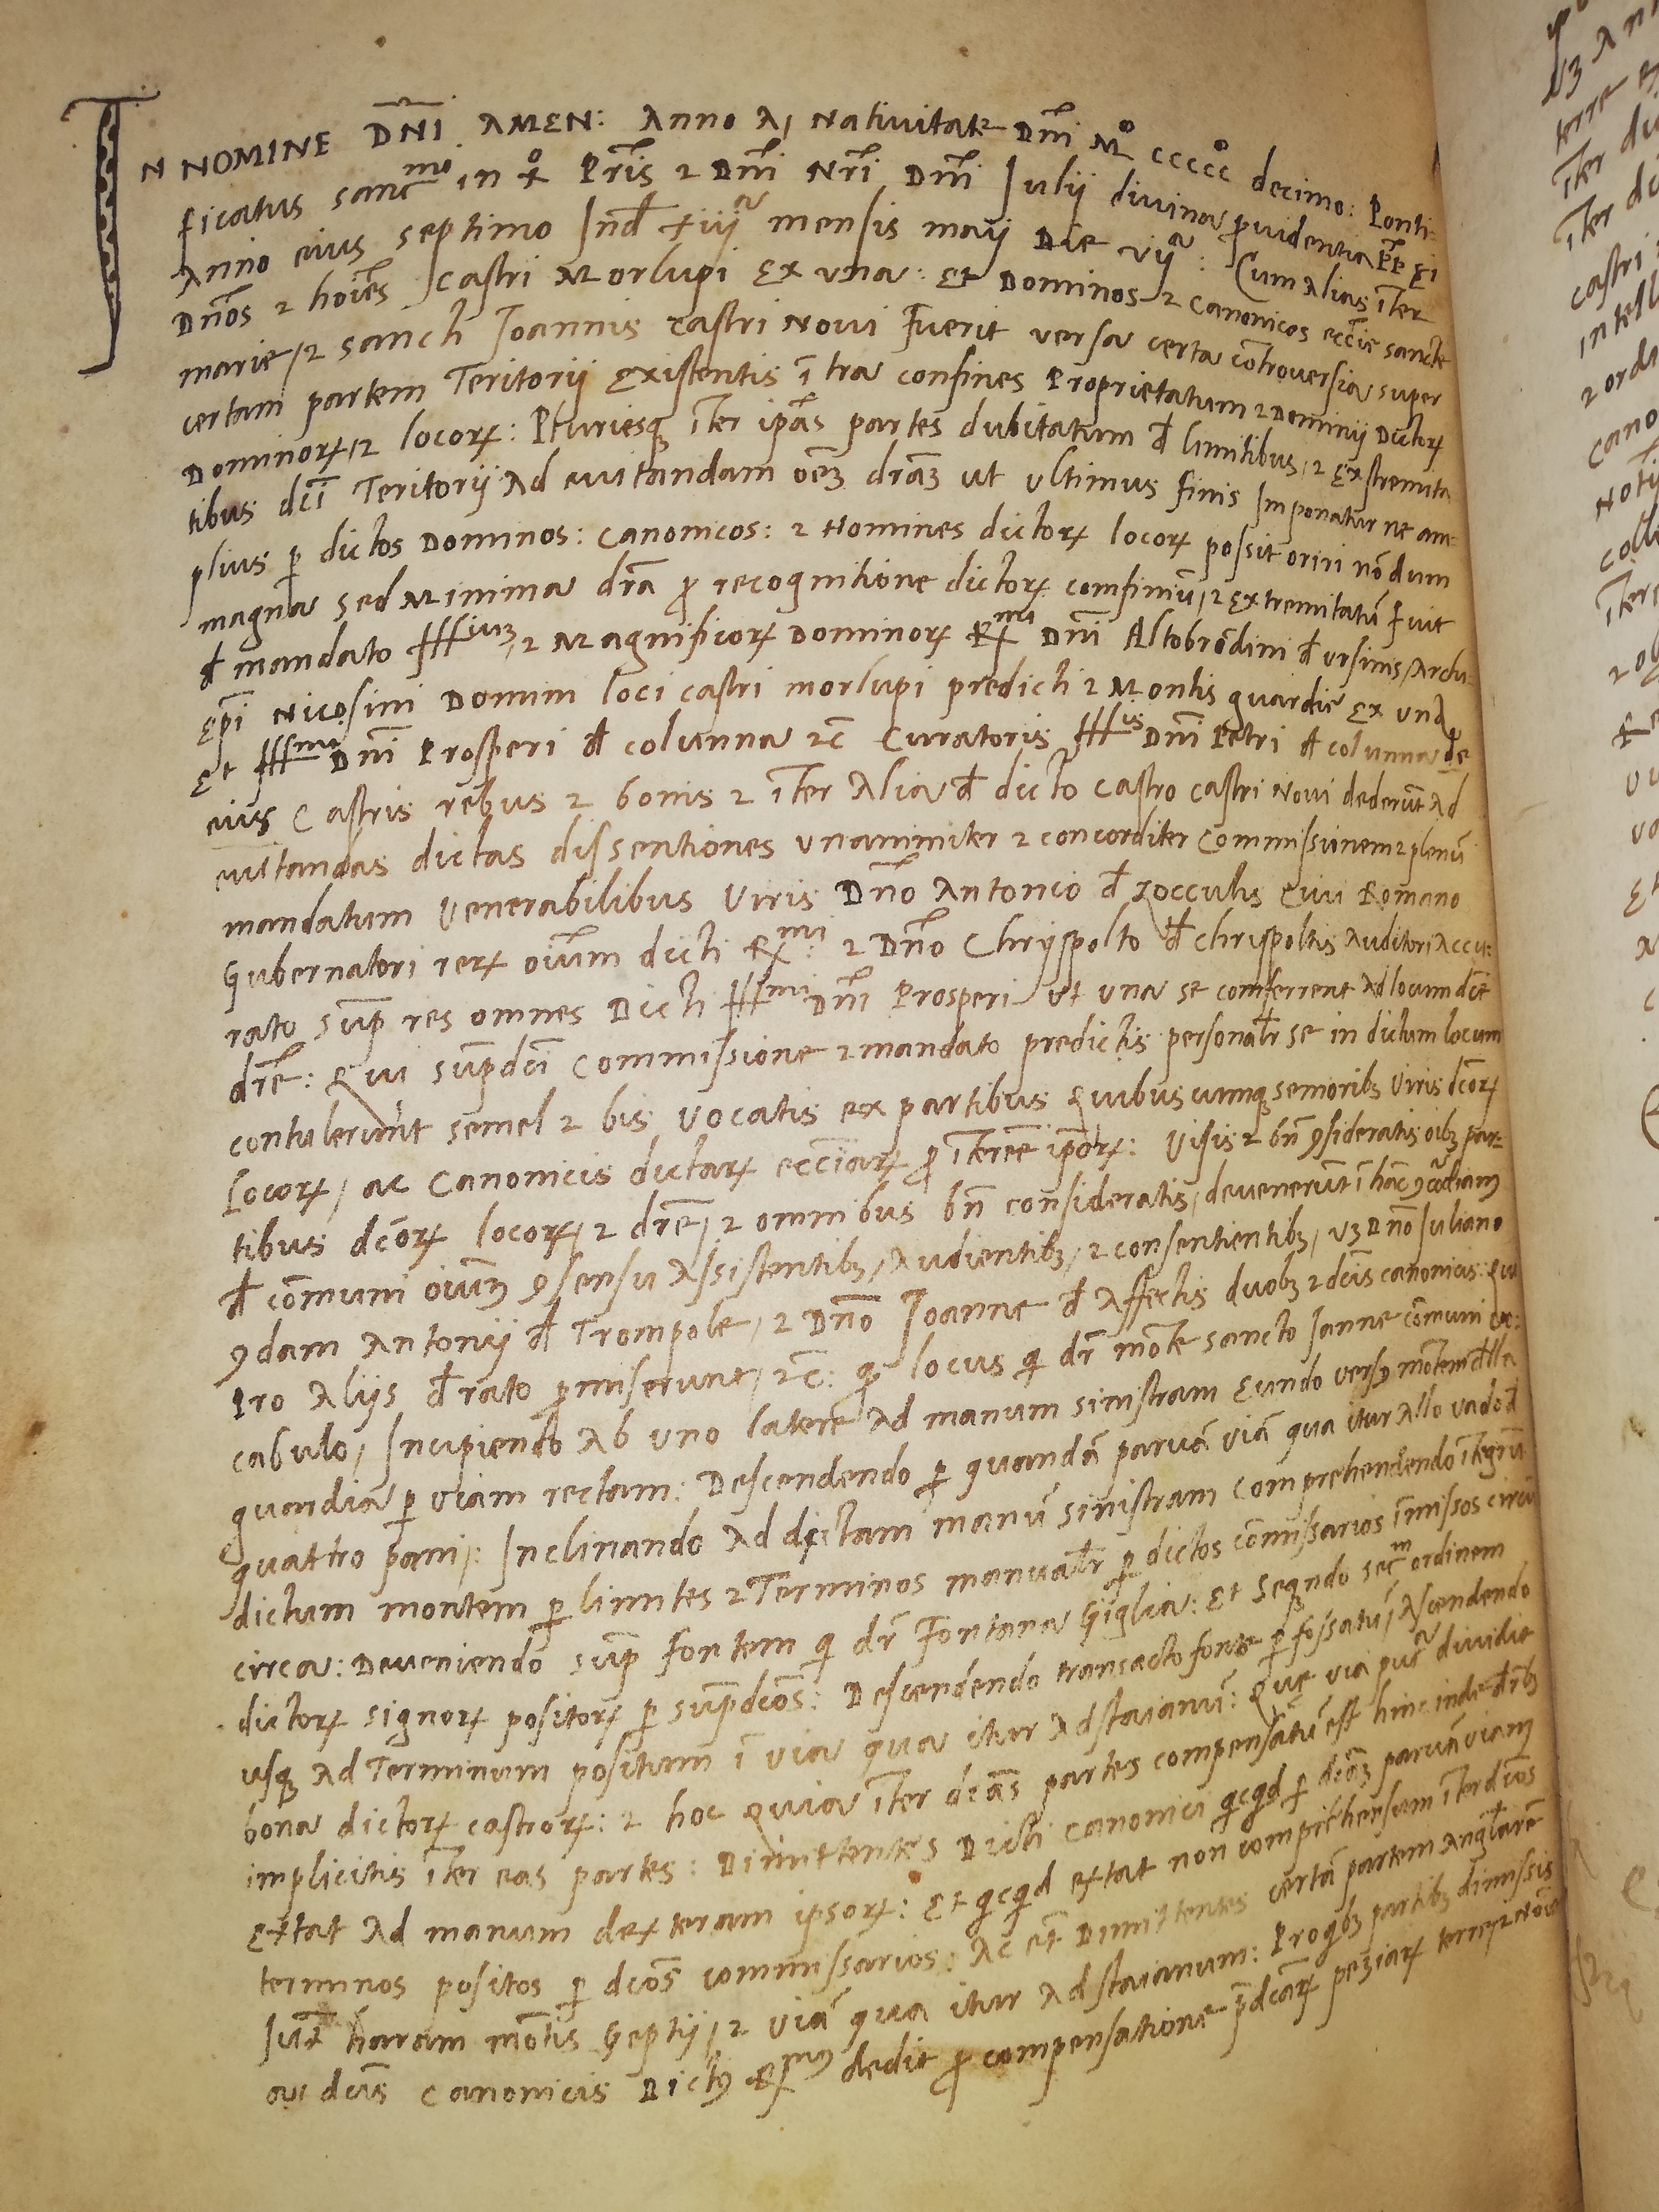 IN NOMINE DNI AMEN: Anno A Nativitate Dnj Mº ccccc decimo: Ponti-
ficatus sanc mi in xº Pris 2 Dnj Nri Dnj Iulij divina providentia PP ei
Anno eius septimo Ind xiijª mensis maij Die vijª: Cum Alias iter
Dnos 2 hoies Castri Morlupi Ex una: Et Dominos 2 Canonicos eccie sancte
marie, 2 sancti Ioannis castri Novi Fuerit versa certa controversia super
certam partem Teritorij Existentis i tra confines Proprietatum 2 Dominij Dictorꝝ
Dominorꝝ, 2 locorꝝ: Pluriesqꝫ iter ipas partes dubitatum đ limitibus, 2 Exstremita
tibus dci Teritorij Ad evitandam oēꝫ dr̄aꝫ ut ultimus finis Imponatur ne am-
plius ꝑ dictos Dominos: Canonicos: 2 Homines dictorꝝ locorꝝ possit oriri nōdum
magna sed Minima dr̄a ꝓ recognitione dictorꝝ confiniū, 2 extremitatū Fuit
đ mandato Illiuꝫ, 2 Magnificorꝝ Dominorꝝ Rmi Dni Altobrōdini đ Ursinis, Archi-
Epi Nicosini Domini loci castri morlupi predicti 2 Montis guardie Ex una
Et Illmi Dni Prosperi đ columna 2c Curatoris Illis Dni Petri đ columna de
eius Castris rebus 2 bonis 2 iter Alia đ dicto castro castri Novi dederūt Ad
evitandas dictas dissentiones unanimiter 2 concorditer Commissionem 2 plenū
mandatum Venerabilibus Viris Dno Antonio đ zocculis Civi Romano
Gubernatori rerꝝ oium dicti Rmi: 2 Dno Chryspolto đ chrispoltis Auditori Accu:
rato sup res omnes Dicti Illmi Dni Prosperi ut una se conferrent Ad locum dce
dr̄e: Qui supdci Commissione 2 mandato predictis personalr se in dictum locum
contulerunt semel 2 bis vocatis ex partibus Quibuscunqꝫ senioribꝫ Viris dcorꝝ
Locorꝝ, ac Canonicis dictarꝝ ecciarꝝ ꝓ iteree ipōrꝝ: Visis 2 bn ꝯsideratis oibꝫ par-
tibus dcorꝝ locorꝝ, 2 dr̄e, 2 omnibus bn consideratis, devenerūt i hāc ꝯcordiamꝫ
đ cōmuni oiumꝫ ꝯsensu Assistentibꝫ, Audientibꝫ, 2 consentientibꝫ, vꝫ Dno Iuliano
ꝯdam Antonij đ Trompole, 2 Dno Ioanne đ Affectis duobꝫ 2 dcis canonicis: Qui
Pro Alijs đ rato ꝓmiserunt, 2c: qꝫ locus qi dr mōte sancto Ianne cōmuni vo:
cabulo, Incipiendo Ab uno latere Ad manum sinistram Eundo versꝰ mōtem đlla
guardia ꝑ viam rectam: Descendendo ꝑ quandā parvā viā qua itur Allo vado đ
quattro pani: Inclinando Ad dictam manū sinistram comprehendendo itegrū
dictum montem ꝑ limites 2 Terminos manualr ꝑ dictos cōmissarios imissos circū
circa: Deveniendo sup fontem qi dr Fontana Giglia: Et Seqꝫndo secm ordinem
dictorꝝ signorꝝ positorꝝ ꝑ supdcos: Descendendo transacto fonte ꝑ fossatū, Ascendendo
usqꝫ Ad Terminum positum i via qua itur Ad staianū: Que via pur dividit
bona dictorꝝ castrorꝝ: 2 hoc Quia iter dcas partes compensatū est hinc inde đribꝫ
implicitis iter eas partes: Dimittentes Dicti canonici qicqid ꝑ dcāꝫ parvā viamꝫ
Extat Ad manum dexteram ipsorꝝ: Et qicqid extat non comprehensum iter dcos
terminos positos ꝑ dcos commissarios: Ac et Dimittentes certā partem Anglarē
Iuxt haram mōtis Geptij, 2 viā qua itur Ad staianum: Pro qibꝫ partibꝫ dimissis
dcis canonicis Dictꝰ Rmꝰ dedit ꝓ compensatione pdcarꝝ peziarꝝ terre